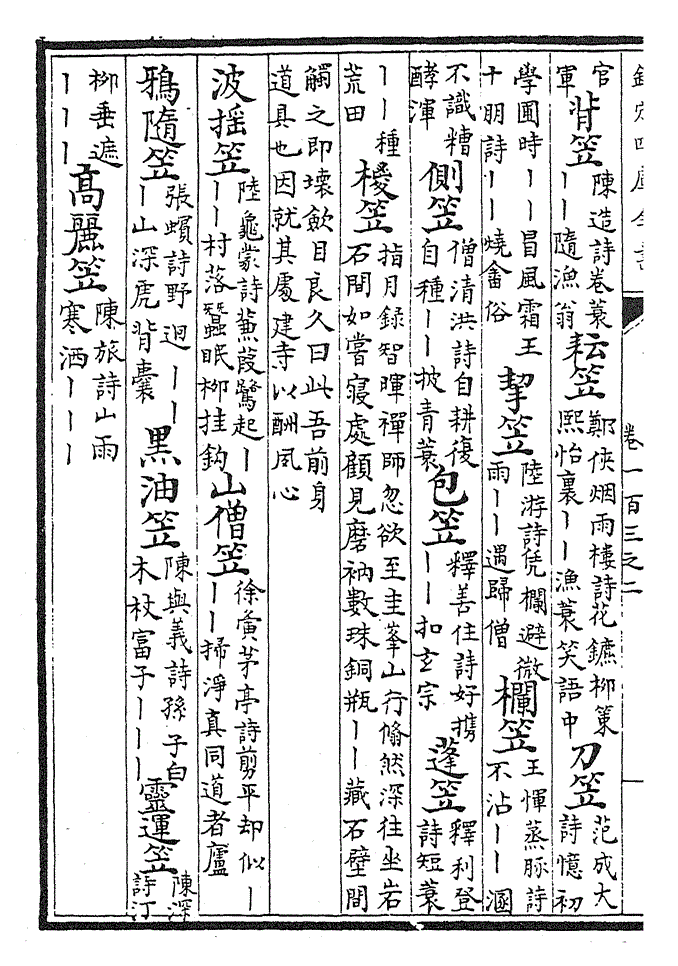 欽定四庫全書 卷一百三之二
官軍背笠陳造詩卷蓑――隨漁翁耘笠鄭俠烟雨樓詩花鑣柳策熙怡裏――漁蓑笑語中刀笠范成大詩憶初
學圃時――昌風霜王十朋詩――燒畬俗挈笠陸游詩凭欄避微雨――遇歸僧欄笠王惲蒸豚詩不沾――溷
不識糟酵渾側笠僧清洪詩自耕復自種――披青蓑包笠釋善住詩好携――扣玄宗蓬笠釋利登詩短蓑
――種荒田椶笠指月録智暉禪師忽欲至圭峯山行翛然深往坐岩石間如嘗寢處顧見磨衲數珠銅瓶――藏石壁間
觸之即壞斂目良久曰此吾前身道具也因就其處建寺以酬夙心
波揺笠陸龜蒙詩蒹葭鷺起―――村落蠶眠柳挂鈎山僧笠徐夤茅亭詩剪平却似―――掃淨真同道者廬
鴉隨笠張蠙詩野迥―――山深虎背囊黑油笠陳與義詩孫子白木杖富子―――靈運笠陳深詩汀
柳垂遮―――高麗笠陳旅詩山雨寒洒―――